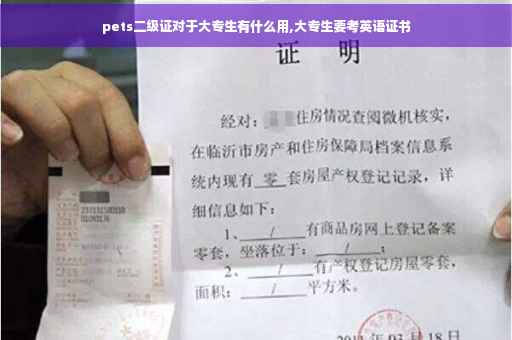 pets二级证对于大专生有什么用,大专生要考英语证书
证 明
经对: 住房情况查阅微机核实,
在临沂市房产和住房保障局档案信息系
统内现有 零 套房屋产权登记记录, 详
细信息如下:
1、 / 有商品房网上登记备案
零套, 坐落位于: / ;
2、 / 有产权登记房屋零套,
面积: / 平方米。
03月18日